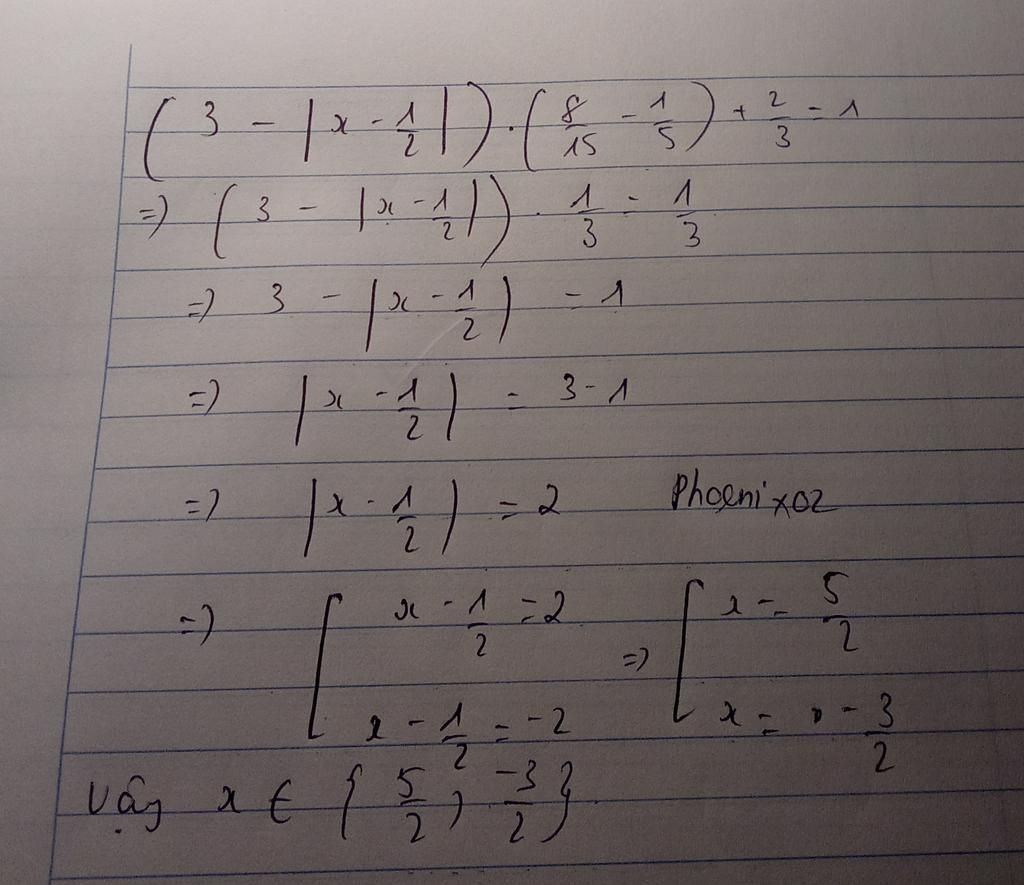 (3 - |x - 1/2|) . (8/15 - 1/5) + 2/3 = 1
=) (3 - |x - 1/2|) . 1/3 = 1/3
=) 3 - |x - 1/2| = 1
=) |x - 1/2| = 3 - 1
=) |x - 1/2| = 2 Phoenixoz
=) [ x - 1/2 = 2 =) [ x = 5/2
x - 1/2 = -2 x = - 3/2
Vậy x ∈ { 5/2 ; -3/2 }